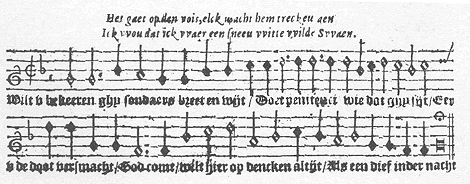 Het gaet op den vois, elck wacht hem trecken aen
Ick wou dat ick waer een sneeu witte wilde Swaen.
Wilt v bekeeren ghy sondaers breet en wijt / Doet penitencie wie dat ghy sijt / Eer
v de doot versmacht / God comt / wilt hier op dencken altijt / Als een dief inder nacht